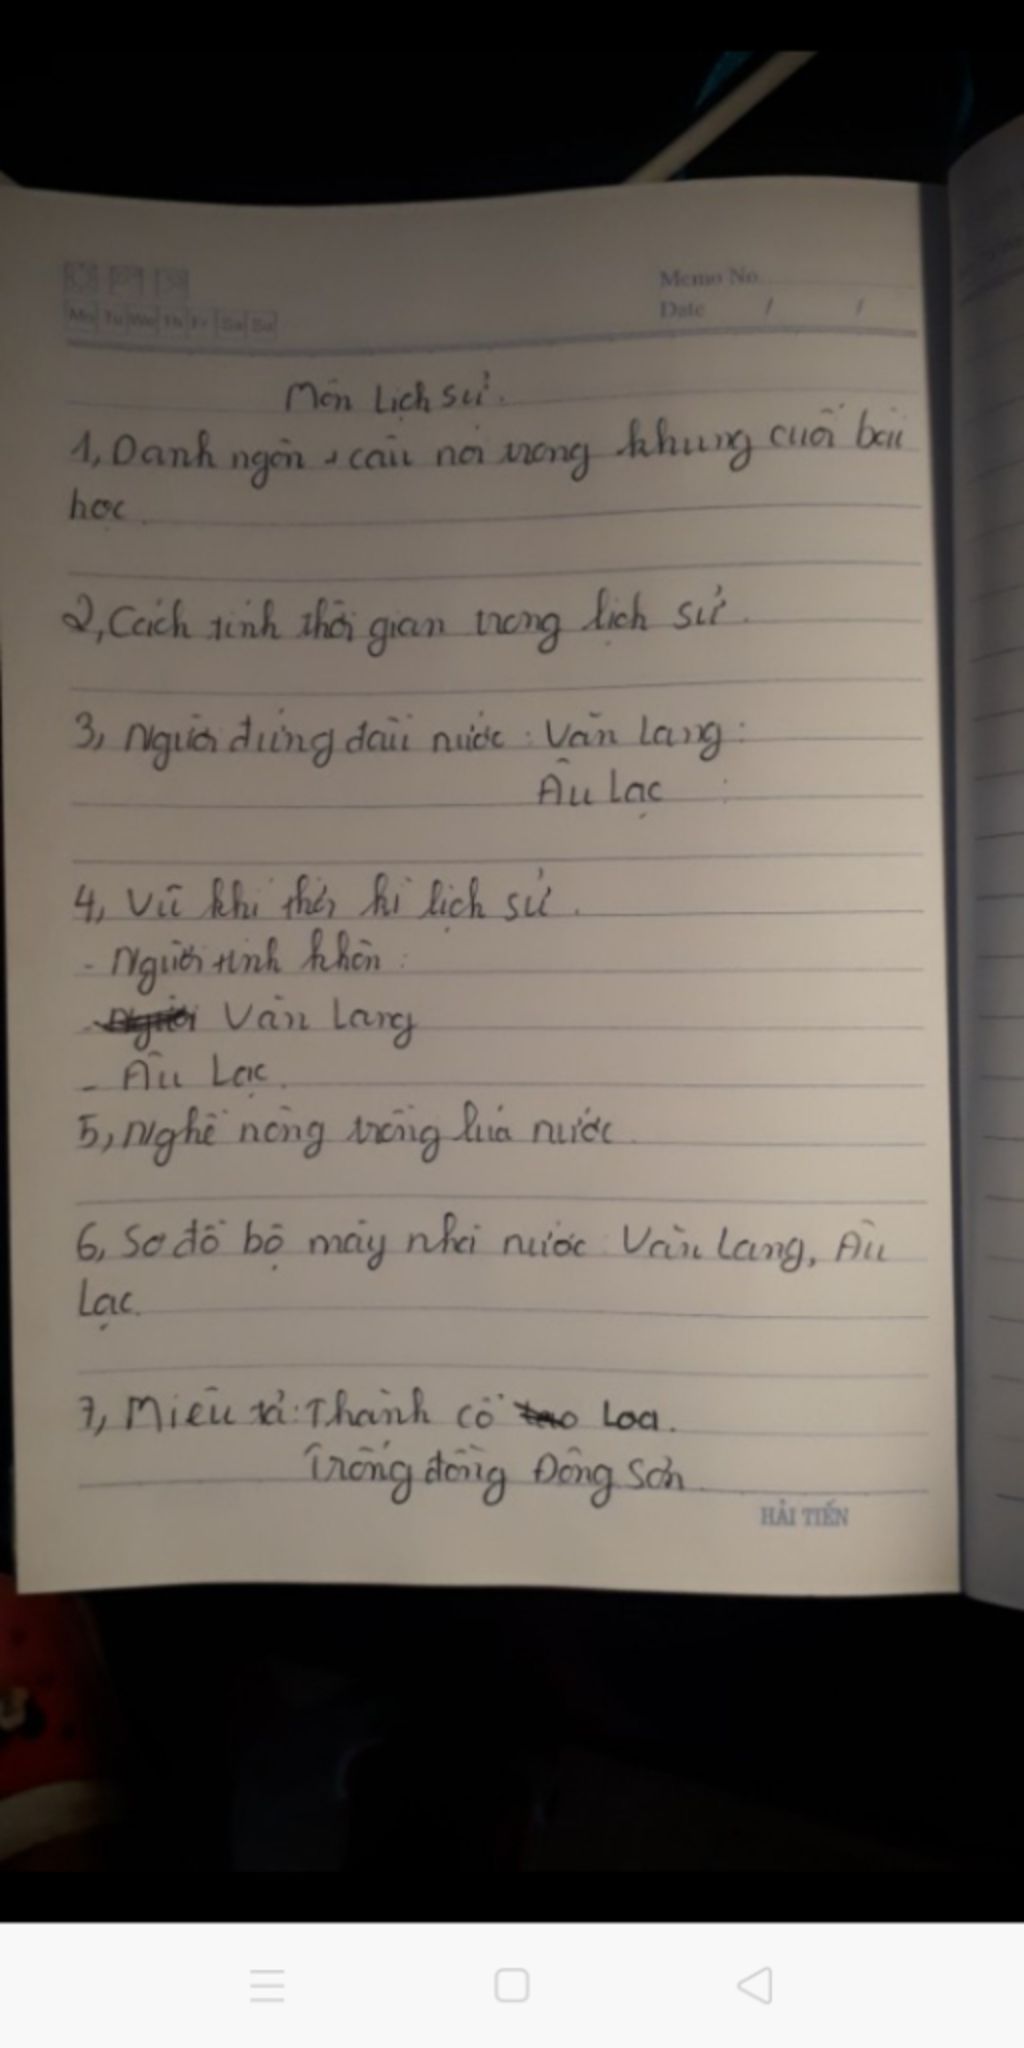 Memo No.
Date / /
Mo Tu We Th Fr Sa Su
Môn Lịch sử.
1, Danh ngôn + câu nói trong khung cuối bài
học.
2, Cách tính thời gian trong lịch sử.
3, Người đứng đầu nước: Văn Lang:
Âu Lạc :
4, Vũ khí thời kì lịch sử.
- Người tinh khôn:
- Văn Lang
- Âu Lạc.
5, Nghề nông trồng lúa nước.
6, Sơ đồ bộ máy nhà nước Văn Lang, Âu
Lạc.
7, Miêu tả: Thành cổ Loa.
Trống đồng Đông Sơn.
HẢI TIẾN